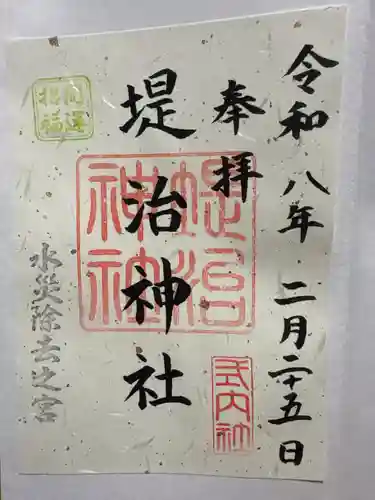 令和八年二月二十五日
奉拝
堤治神社
堤治神社
式内社
開運招福
水災除去之宮